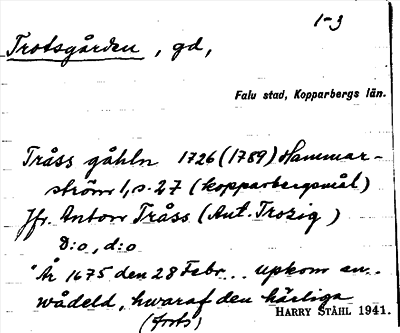 1-3
Trotsgården, gd,
Falu stad, Kopparbergs län.
Tråss gåhln 1726 (1789) Hammar-
ström 1, s. 27 (kopparbergsmål)
Jfr. Anton Tråss (Ant. Trotzig)
D:o, d:o
"År 1675 den 28 Febr... upkom en..
wådeld, hwaraf den härliga
(forts)
HARRY STÅHL 1941.